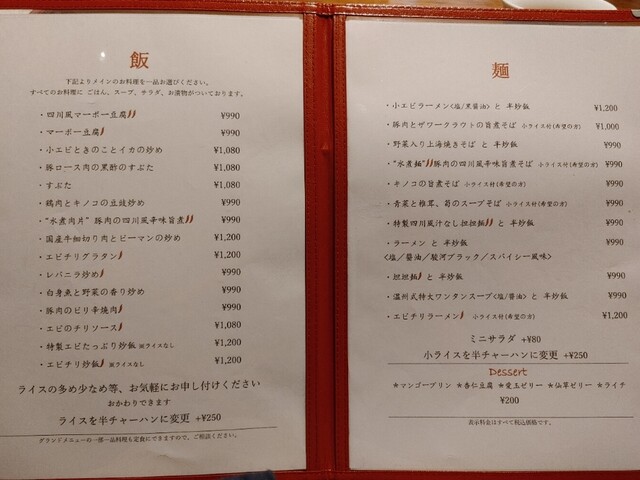 飯
下記よりメインのお料理を一品お選びください。
すべてのお料理に ごはん、スープ、サラダ、お漬物がついております。
・四川風マーボー豆腐 ¥990
・マーボー豆腐 ¥990
・小エビときのことイカの炒め ¥1,080
・豚ロース肉の黒酢のすぶた ¥1,080
・すぶた ¥1,080
・鶏肉とキノコの豆豉炒め ¥990
・"水煮肉片" 豚肉の四川風辛味旨煮 ¥990
・国産牛細切り肉とピーマンの炒め ¥1,200
・エビチリグラタン ¥1,200
・レバニラ炒め ¥990
・白身魚と野菜の香り炒め ¥990
・豚肉のピリ辛焼肉 ¥990
・エビのチリソース ¥1,080
・特製エビたっぷり炒飯 ※ライスなし ¥1,200
・エビチリ炒飯 ※ライスなし ¥1,200
ライスの多め少なめ等、お気軽にお申し付けください
おかわりできます
ライスを半チャーハンに変更 +¥250
グランドメニューの一部一品料理も定食にできますので、ご相談ください。
麺
・小エビラーメン<塩/黒醤油> と 半炒飯 ¥1,200
・豚肉とザワークラウトの旨煮そば 小ライス付(希望の方) ¥1,000
・野菜入り上海焼きそば と 半炒飯 ¥990
・"水煮麺" 豚肉の四川風辛味旨煮そば 小ライス付(希望の方) ¥990
・キノコの旨煮そば 小ライス付(希望の方) ¥990
・青菜と椎茸、筍のスープそば 小ライス付(希望の方) ¥990
・特製四川風汁なし担担麺 と 半炒飯 ¥990
・ラーメン と 半炒飯 ¥990
<塩/醤油/駿河ブラック/スパイシー風味>
・担担麺 と 半炒飯 ¥990
・温州式特大ワンタンスープ<塩/醤油> と 半炒飯 ¥990
・エビチリラーメン 小ライス付(希望の方) ¥1,200
ミニサラダ +¥80
小ライスを半チャーハンに変更 +¥250
Dessert
★マンゴープリン ★杏仁豆腐 ★愛玉ゼリー ★仙草ゼリー ★ライチ
¥200
表示料金はすべて税込価格です。